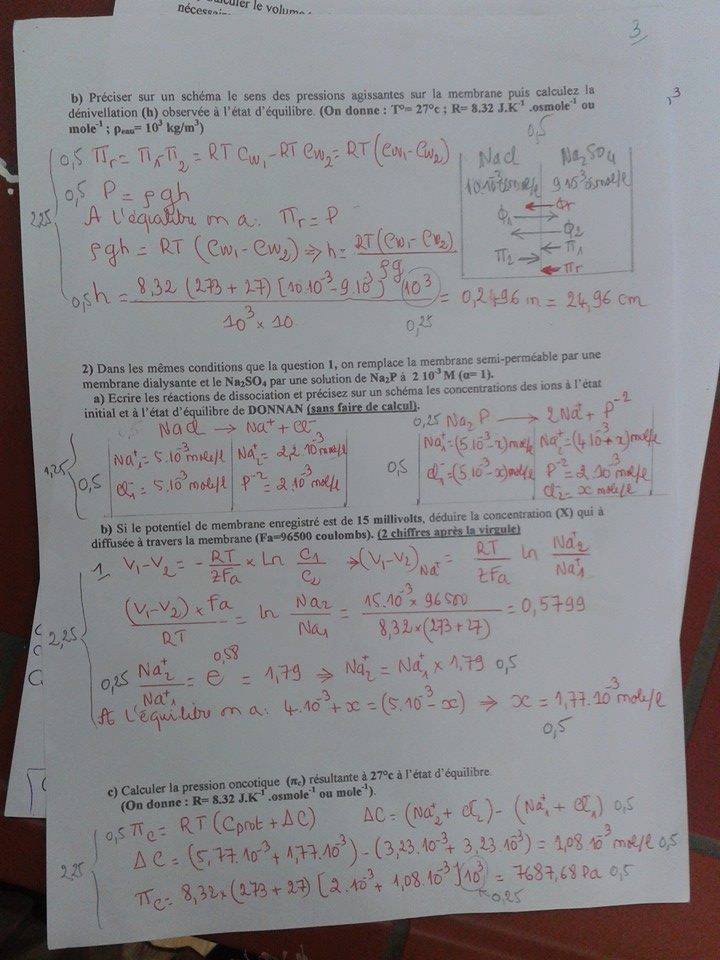 culer le volume
nécessair
3
b) Préciser sur un schéma le sens des pressions agissantes sur la membrane puis calculez la
dénivellation (h) observée à l'état d'équilibre. (On donne : T°= 27°c ; R= 8.32 J.K⁻¹ .osmole⁻¹ ou
mole⁻¹ ; ρeau= 10³ kg/m³)
0,5
2,25
0,5 πr = π1 π2 = RT Cw1 - RT Cw2 = RT (Cw1 - Cw2)
0,5 P = ρgh
A l'équilibre on a: πr = P
ρgh = RT (Cw1 - Cw2) ⇒ h = RT (Cw1 - Cw2) / ρg
0,5 h = 8,32 (273 + 27) [10.10⁻³ - 9.10⁻³] 10³ / 10³ × 10 = 0,2496 m = 24,96 cm
0,25
NaCl Na2SO4
10.10⁻³ osmole/l 9.10⁻³ osmole/l
Φr
Φ1
Φ2
π1
π2
πr
2) Dans les mêmes conditions que la question 1, on remplace la membrane semi-perméable par une
membrane dialysante et le Na₂SO₄ par une solution de Na₂P à 2 10⁻³ M (α= 1).
a) Ecrire les réactions de dissociation et précisez sur un schéma les concentrations des ions à l'état
initial et à l'état d'équilibre de DONNAN (sans faire de calcul).
1,25
NaCl → Na⁺ + Cl⁻
0,25 Na2P → 2Na⁺ + P⁻²
0,5
Na1⁺ = 5.10⁻³ mole/l Na2⁺ = 2,2.10⁻³
Cl1⁻ = 5.10⁻³ mole/l P⁻² = 2.10⁻³ mole/l
0,5
Na1⁺ = (5.10⁻³ - x) mole/l Na2⁺ = (4.10⁻³ + x) mole/l
Cl1⁻ = (5.10⁻³ - x) mole/l P⁻² = 2.10⁻³ mole/l
Cl2⁻ = x mole/l
b) Si le potentiel de membrane enregistré est de 15 millivolts, déduire la concentration (X) qui à
diffusée à travers la membrane (Fa=96500 coulombs). (2 chiffres après la virgule)
2,25
1 V1 - V2 = - RT / ZFa × Ln C1 / C2 → (V1 - V2)Na⁺ = RT / ZFa ln Na2⁺ / Na1⁺
(V1 - V2) × Fa / RT = ln Na2 / Na1 = 15.10⁻³ × 96500 / 8,32 × (273 + 27) = 0,5799
0,25 Na2⁺ / Na1⁺ = e^0,58 = 1,79 ⇒ Na2⁺ = Na1⁺ × 1,79 0,5
A l'équilibre on a: 4.10⁻³ + x = (5.10⁻³ - x) ⇒ x = 1,77.10⁻³ mole/l
0,5
c) Calculer la pression oncotique (πc) résultante à 27°c à l'état d'équilibre.
(On donne : R= 8.32 J.K⁻¹ .osmole⁻¹ ou mole⁻¹).
2,25
0,5 πc = RT (Cprot + ΔC) ΔC = (Na2⁺ + Cl2⁻) - (Na1⁺ + Cl1⁻) 0,5
ΔC = (5,77.10⁻³ + 1,77.10⁻³) - (3,23.10⁻³ + 3,23.10⁻³) = 1,08.10⁻³ mole/l 0,5
πc = 8,32 × (273 + 27) [2.10⁻³ + 1,08.10⁻³] 10³ = 7687,68 Pa 0,5
0,25